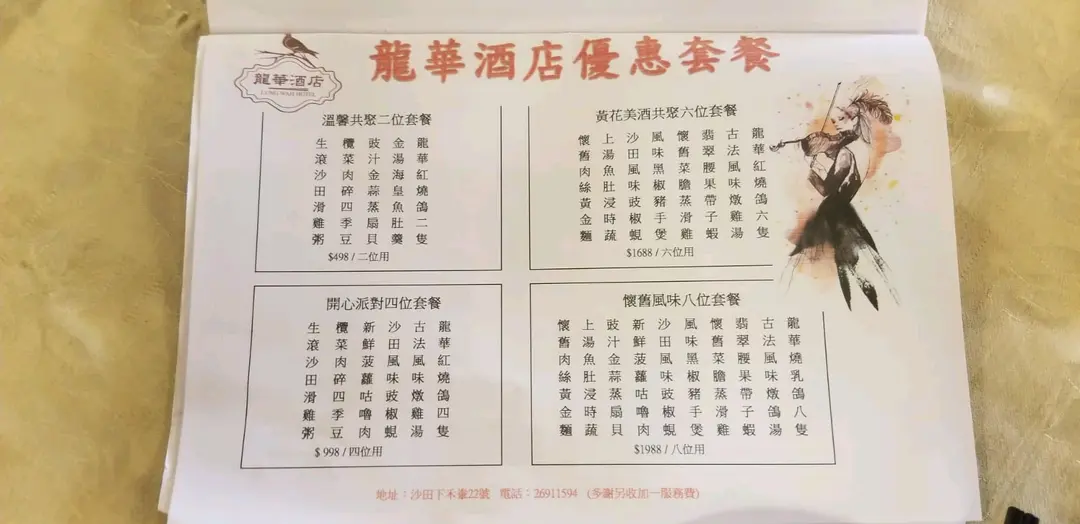 龍華酒店優惠套餐
龍華酒店
LUNG WAH HOTEL
溫馨共聚二位套餐
龍華紅燒鴿二隻
金湯海皇魚肚羹
豉汁金蒜蒸扇貝
欖菜肉碎四季豆
生滾沙田滑雞粥
$498 / 二位用
黃花美酒共聚六位套餐
龍華紅燒鴿六隻
古法風味燉雞湯
翡翠腰果帶子蝦
懷舊菜膽蒸滑雞
風味黑椒豬手煲
沙田風味豉椒蜆
上湯魚肚浸時蔬
懷舊肉絲黃金麵
$1688 / 六位用
開心派對四位套餐
龍華紅燒鴿四隻
古法風味燉雞湯
沙田風味豉椒蜆
新鮮菠蘿咕嚕肉
欖菜肉碎四季豆
生滾沙田滑雞粥
$ 998 / 四位用
懷舊風味八位套餐
龍華燒乳鴿八隻
古法風味燉鴿湯
翡翠腰果帶子蝦
懷舊菜膽蒸滑雞
風味黑椒豬手煲
沙田風味豉椒蜆
新鮮菠蘿咕嚕肉
豉汁金蒜蒸扇貝
上湯魚肚浸時蔬
懷舊肉絲黃金麵
$1988 / 八位用
地址：沙田下禾輋22號 電話：26911594 (多謝另收加一服務費)